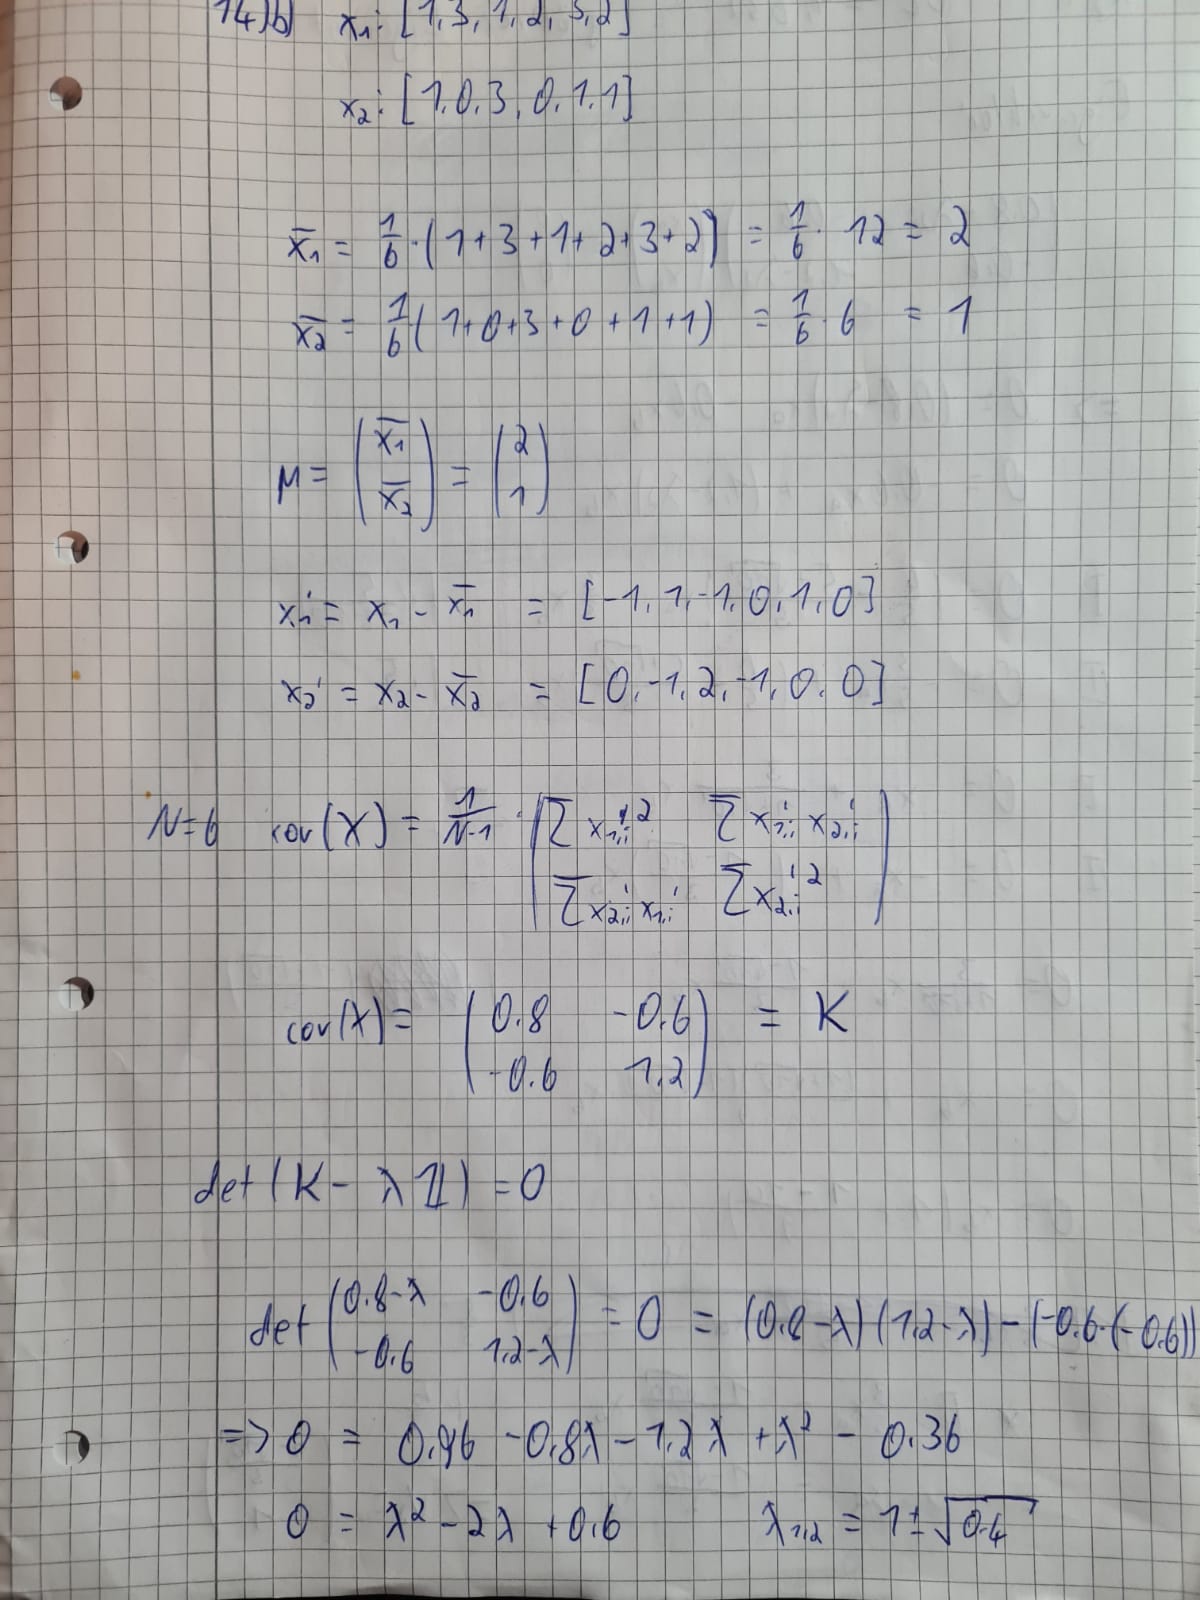 14)b) x₁: [1,3,1,2,3,2]
x₂: [1,0,3,0,1,1]
x̄₁ = 1/6 · (1+3+1+2+3+2) = 1/6 · 12 = 2
x̄₂ = 1/6 (1+0+3+0+1+1) = 1/6 · 6 = 1
μ = (x̄₁ x̄₂) = (2 1)
x₁' = x₁ - x̄₁ = [-1,1,-1,0,1,0]
x₂' = x₂ - x̄₂ = [0,-1,2,-1,0,0]
N=6 cov(X) = 1/(N-1) · (Σ x₁,ᵢ'² Σ x₁,ᵢ' x₂,ᵢ'
Σ x₂,ᵢ' x₁,ᵢ' Σ x₂,ᵢ'²)
cov(X) = (0.8 -0.6
-0.6 1.2) = K
det(K - λ𝟙) = 0
det (0.8-λ -0.6
-0.6 1.2-λ) = 0 = (0.8-λ)(1.2-λ)-(-0.6·(-0.6))
=> 0 = 0.96 - 0.8λ - 1.2λ + λ² - 0.36
0 = λ² - 2λ + 0.6 λ₁,₂ = 1 ± √0.4